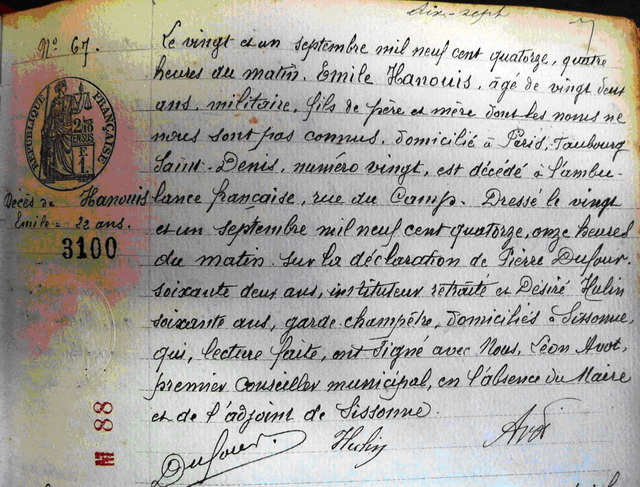 Dix-sept
N° 67.
Le vingt et un septembre mil neuf cent quatorze, quatre
heures du matin. Emile Hanouis, âgé de vingt deux
ans, militaire, fils de père et mère dont les noms ne
nous sont pas connus, domicilié à Paris, Faubourg
Saint-Denis, numéro vingt, est décédé à l'ambu-
lance française, rue du Camp. Dressé le vingt
et un septembre mil neuf cent quatorze, onze heures
du matin sur la déclaration de Pierre Dufour
soixante deux ans, instituteur retraité et Désiré Hulin
soixante ans, garde champêtre, domiciliés à Sissonne,
qui, lecture faite, ont signé avec Nous, Léon Avot,
premier conseiller municipal, en l'absence du Maire
et de l'adjoint de Sissonne.
Dufour
Hulin
Avot
REPUBLIQUE FRANÇAISE
Décès de Hanouis
Emile = 22 ans.
3100
M 88